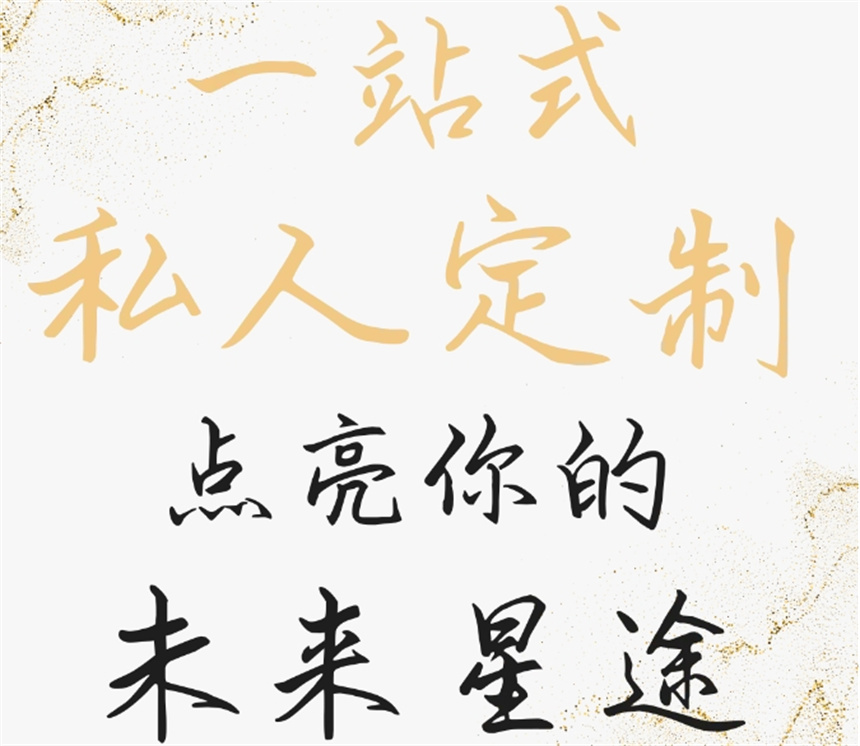 一站式
私人定制
点亮你的
未来星途